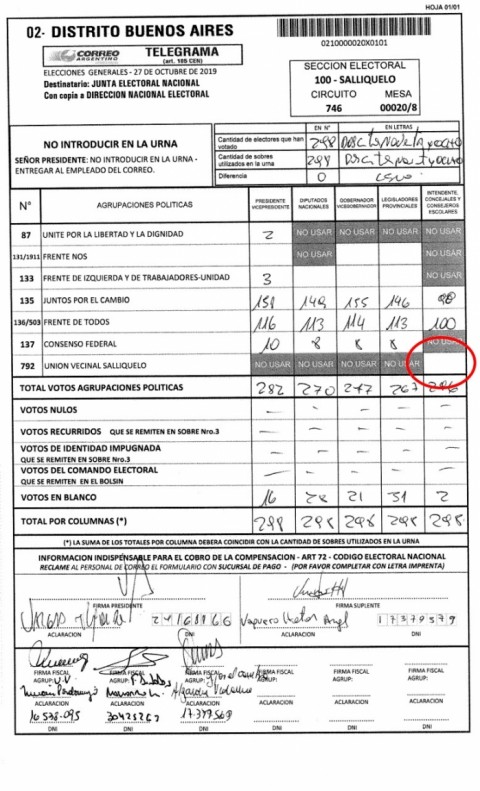 HOJA 01/01
02- DISTRITO BUENOS AIRES
CORREO ARGENTINO
TELEGRAMA
(art. 105 CEN)
0210000020X0101
ELECCIONES GENERALES - 27 DE OCTUBRE DE 2019
Destinatario: JUNTA ELECTORAL NACIONAL
Con copia a DIRECCION NACIONAL ELECTORAL
SECCION ELECTORAL
100 - SALLIQUELO
CIRCUITO MESA
746 00020/8
NO INTRODUCIR EN LA URNA
SEÑOR PRESIDENTE: NO INTRODUCIR EN LA URNA - ENTREGAR AL EMPLEADO DEL CORREO.
EN N° EN LETRAS
Cantidad de electores que han votado 298
Cantidad de sobres utilizados en la urna 298
Diferencia 0 cero
N° AGRUPACIONES POLITICAS PRESIDENTE VICEPRESIDENTE DIPUTADOS NACIONALES GOBERNADOR VICEGOBERNADOR LEGISLADORES PROVINCIALES INTENDENTE, CONCEJALES Y CONSEJEROS ESCOLARES
87 UNITE POR LA LIBERTAD Y LA DIGNIDAD 2 NO USAR NO USAR NO USAR NO USAR
131/1911 FRENTE NOS NO USAR NO USAR
133 FRENTE DE IZQUIERDA Y DE TRABAJADORES-UNIDAD 3 NO USAR
135 JUNTOS POR EL CAMBIO 151 149 155 146
136/503 FRENTE DE TODOS 116 113 114 113 100
137 CONSENSO FEDERAL 10 8 8 8 NO USAR
792 UNION VECINAL SALLIQUELO NO USAR NO USAR NO USAR NO USAR
TOTAL VOTOS AGRUPACIONES POLITICAS 282 270 277 267 296
VOTOS NULOS - - - - -
VOTOS RECURRIDOS QUE SE REMITEN EN SOBRE Nro.3 - - - - -
VOTOS DE IDENTIDAD IMPUGNADA
QUE SE REMITEN EN SOBRE Nro.3 - - - - -
VOTOS DEL COMANDO ELECTORAL
QUE SE REMITEN EN EL BOLSIN - - - - -
VOTOS EN BLANCO 16 28 21 31 2
TOTAL POR COLUMNAS (*) 298 298 298 298 298
(*) LA SUMA DE LOS TOTALES POR COLUMNA DEBERA COINCIDIR CON LA CANTIDAD DE SOBRES UTILIZADOS EN LA URNA
INFORMACION INDISPENSABLE PARA EL COBRO DE LA COMPENSACION - ART 72 - CODIGO ELECTORAL NACIONAL
RECLAME AL PERSONAL DE CORREO EL FORMULARIO CON SUCURSAL DE PAGO - (POR FAVOR COMPLETAR CON LETRA IMPRENTA)
FIRMA PRESIDENTE FIRMA SUPLENTE
Vaquero 17379579
ACLARACION DNI ACLARACION DNI
FIRMA FISCAL FIRMA FISCAL FIRMA FISCAL FIRMA FISCAL FIRMA FISCAL FIRMA FISCAL
AGRUP: U.V. AGRUP: F. Todos AGRUP: AGRUP: AGRUP: AGRUP:
ACLARACION ACLARACION ACLARACION ACLARACION ACLARACION ACLARACION
16.538.095 30425267 17.379.569
DNI DNI DNI DNI DNI DNI